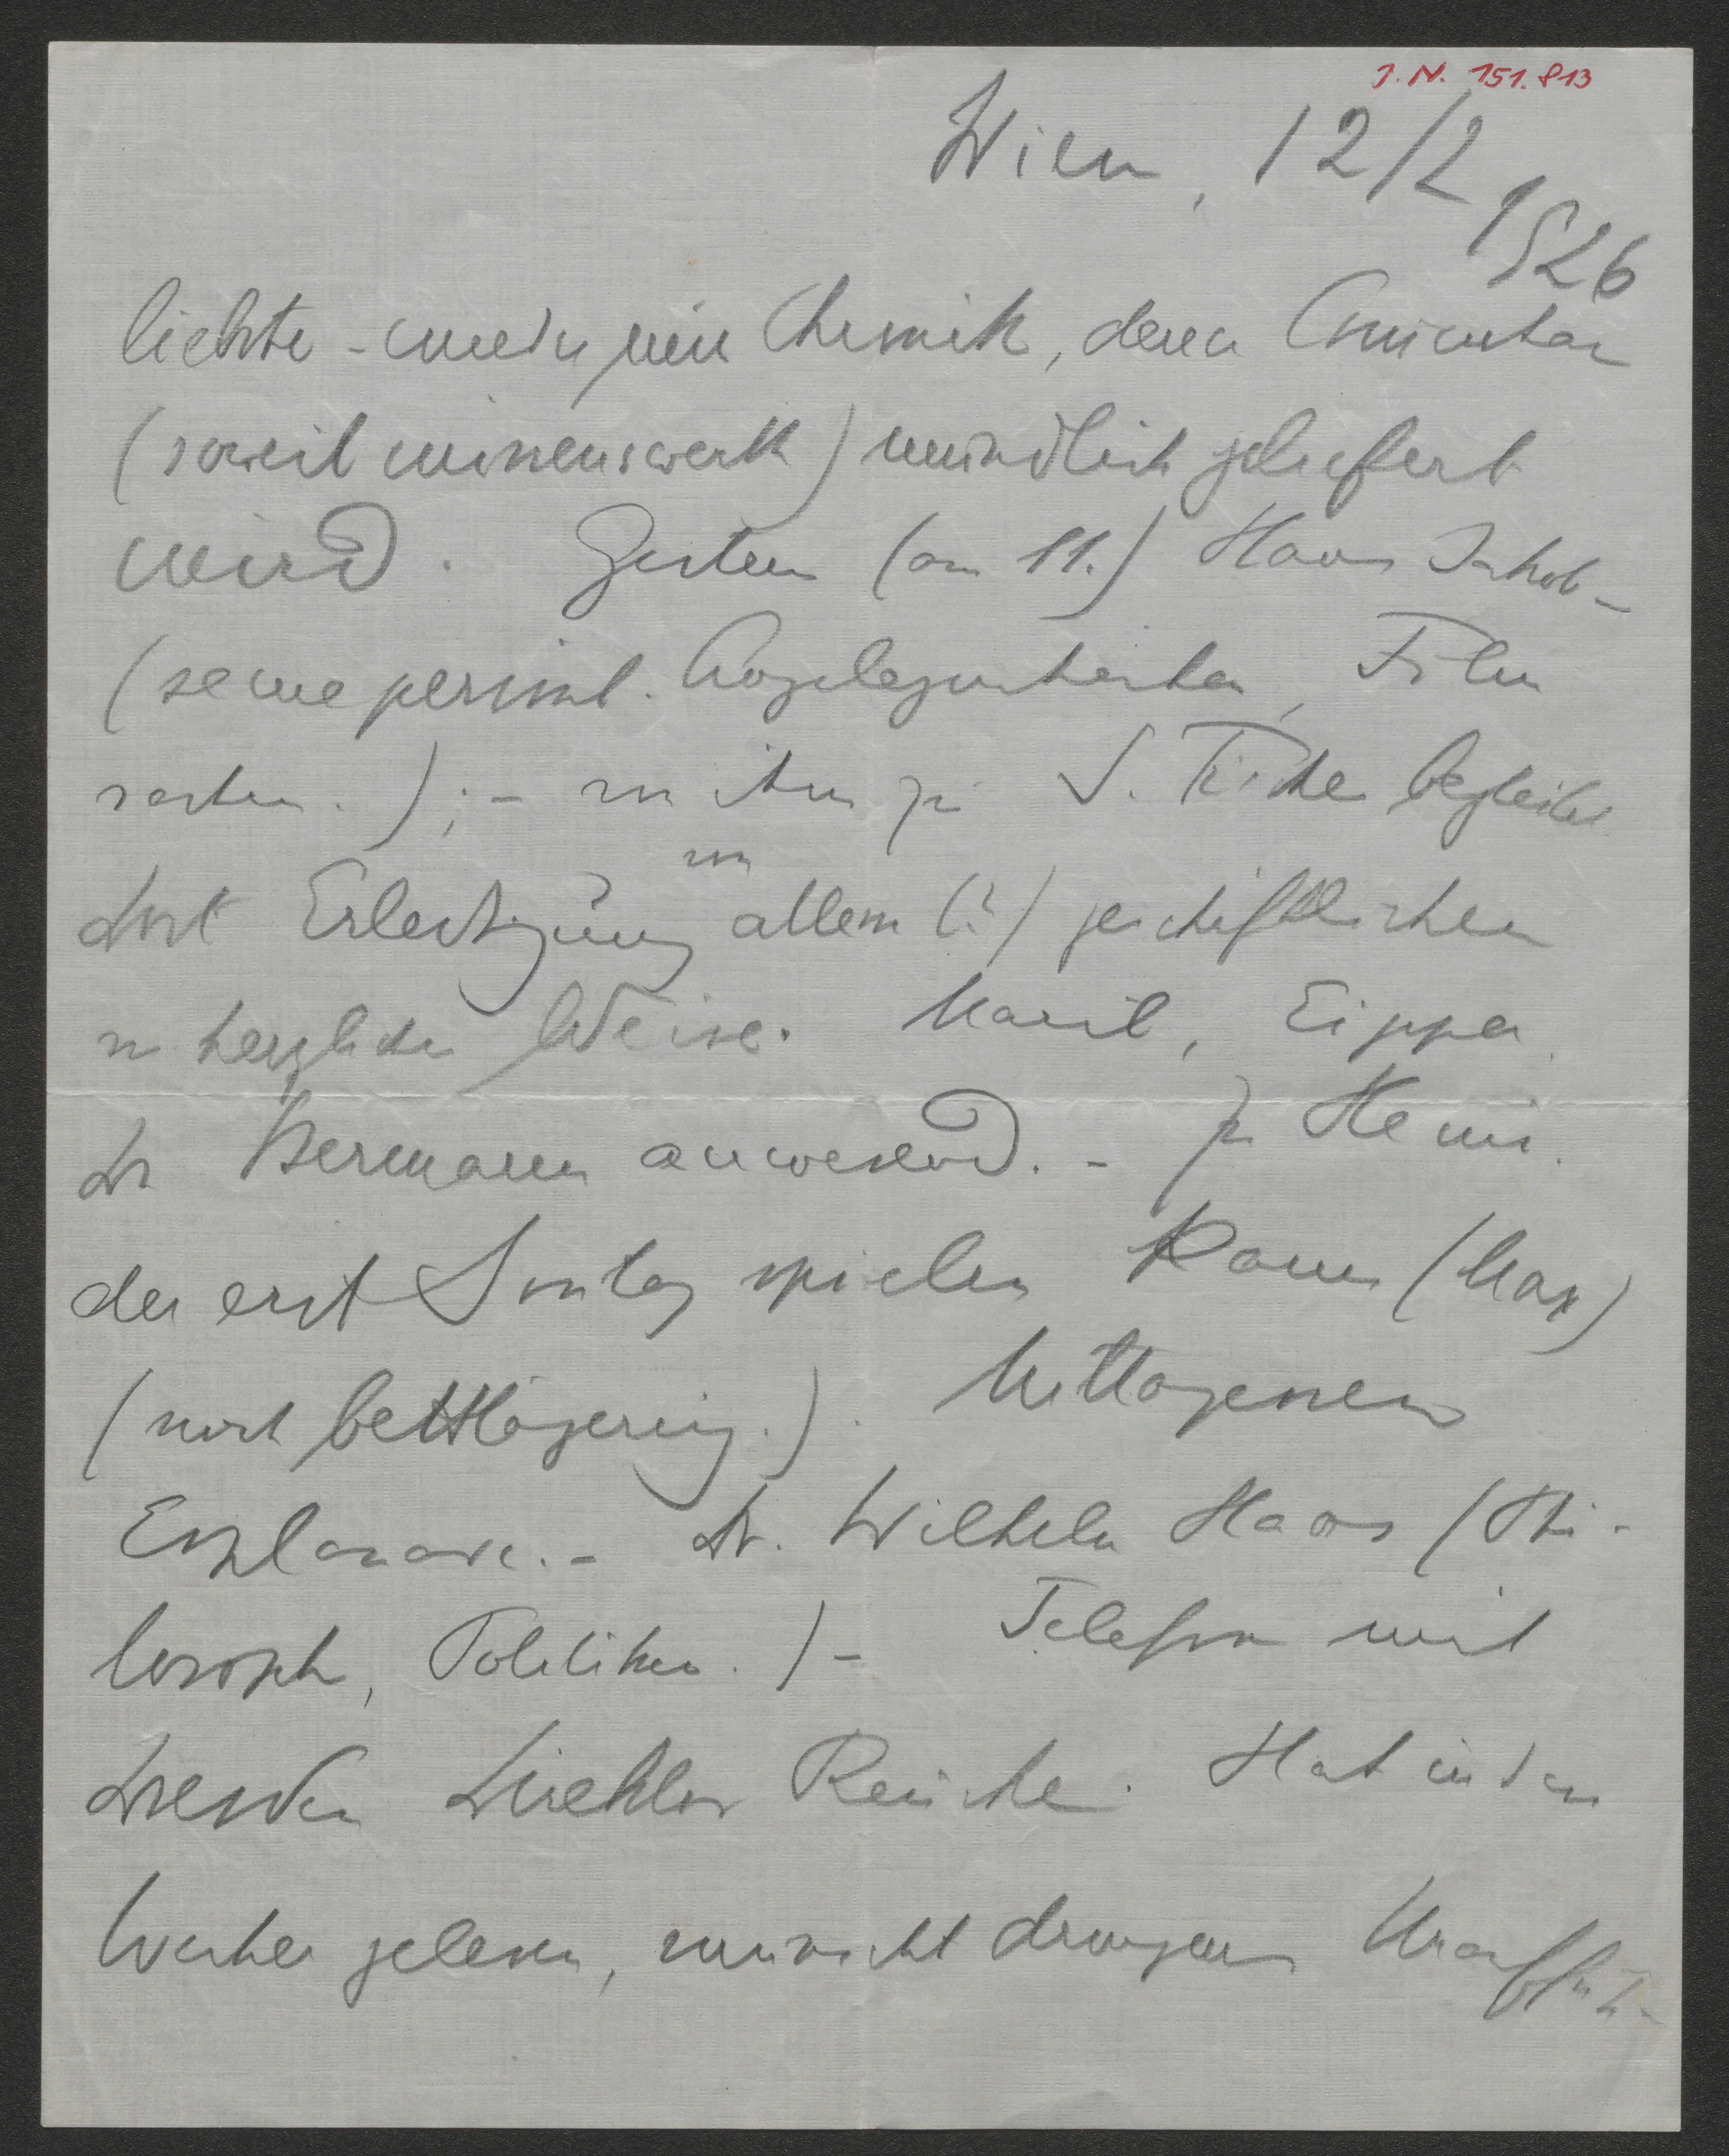 J. N. 151.813
Wien, 12/2
1926
liebste – wieder eine Chronik, deren Commentar
(soweit wissenswerth) mündlich geliefert
wird. Gestern (am 11.) Hans Jakob –
(seine persönl. Angelegenheiten, Film
sachen.); – von ihm zu S. Fischer begleitet
dort Erledigung von allem (?) geschäftlichen
in herzlicher Weise. Maril, Eipper,
Dr Bermann anwesend. – Zu Heini.
der erst Sontag spielen kann (Max)
(noch bettlägerig.). Mittagessen
Esplanade. – Dr. Wilhelm Haas (Phi-
losoph, Politiker.) – Telefon mit
Dresden Direktor Reucke. Hat indess
Weiher gelesen, wünscht dringend Urauffüh-